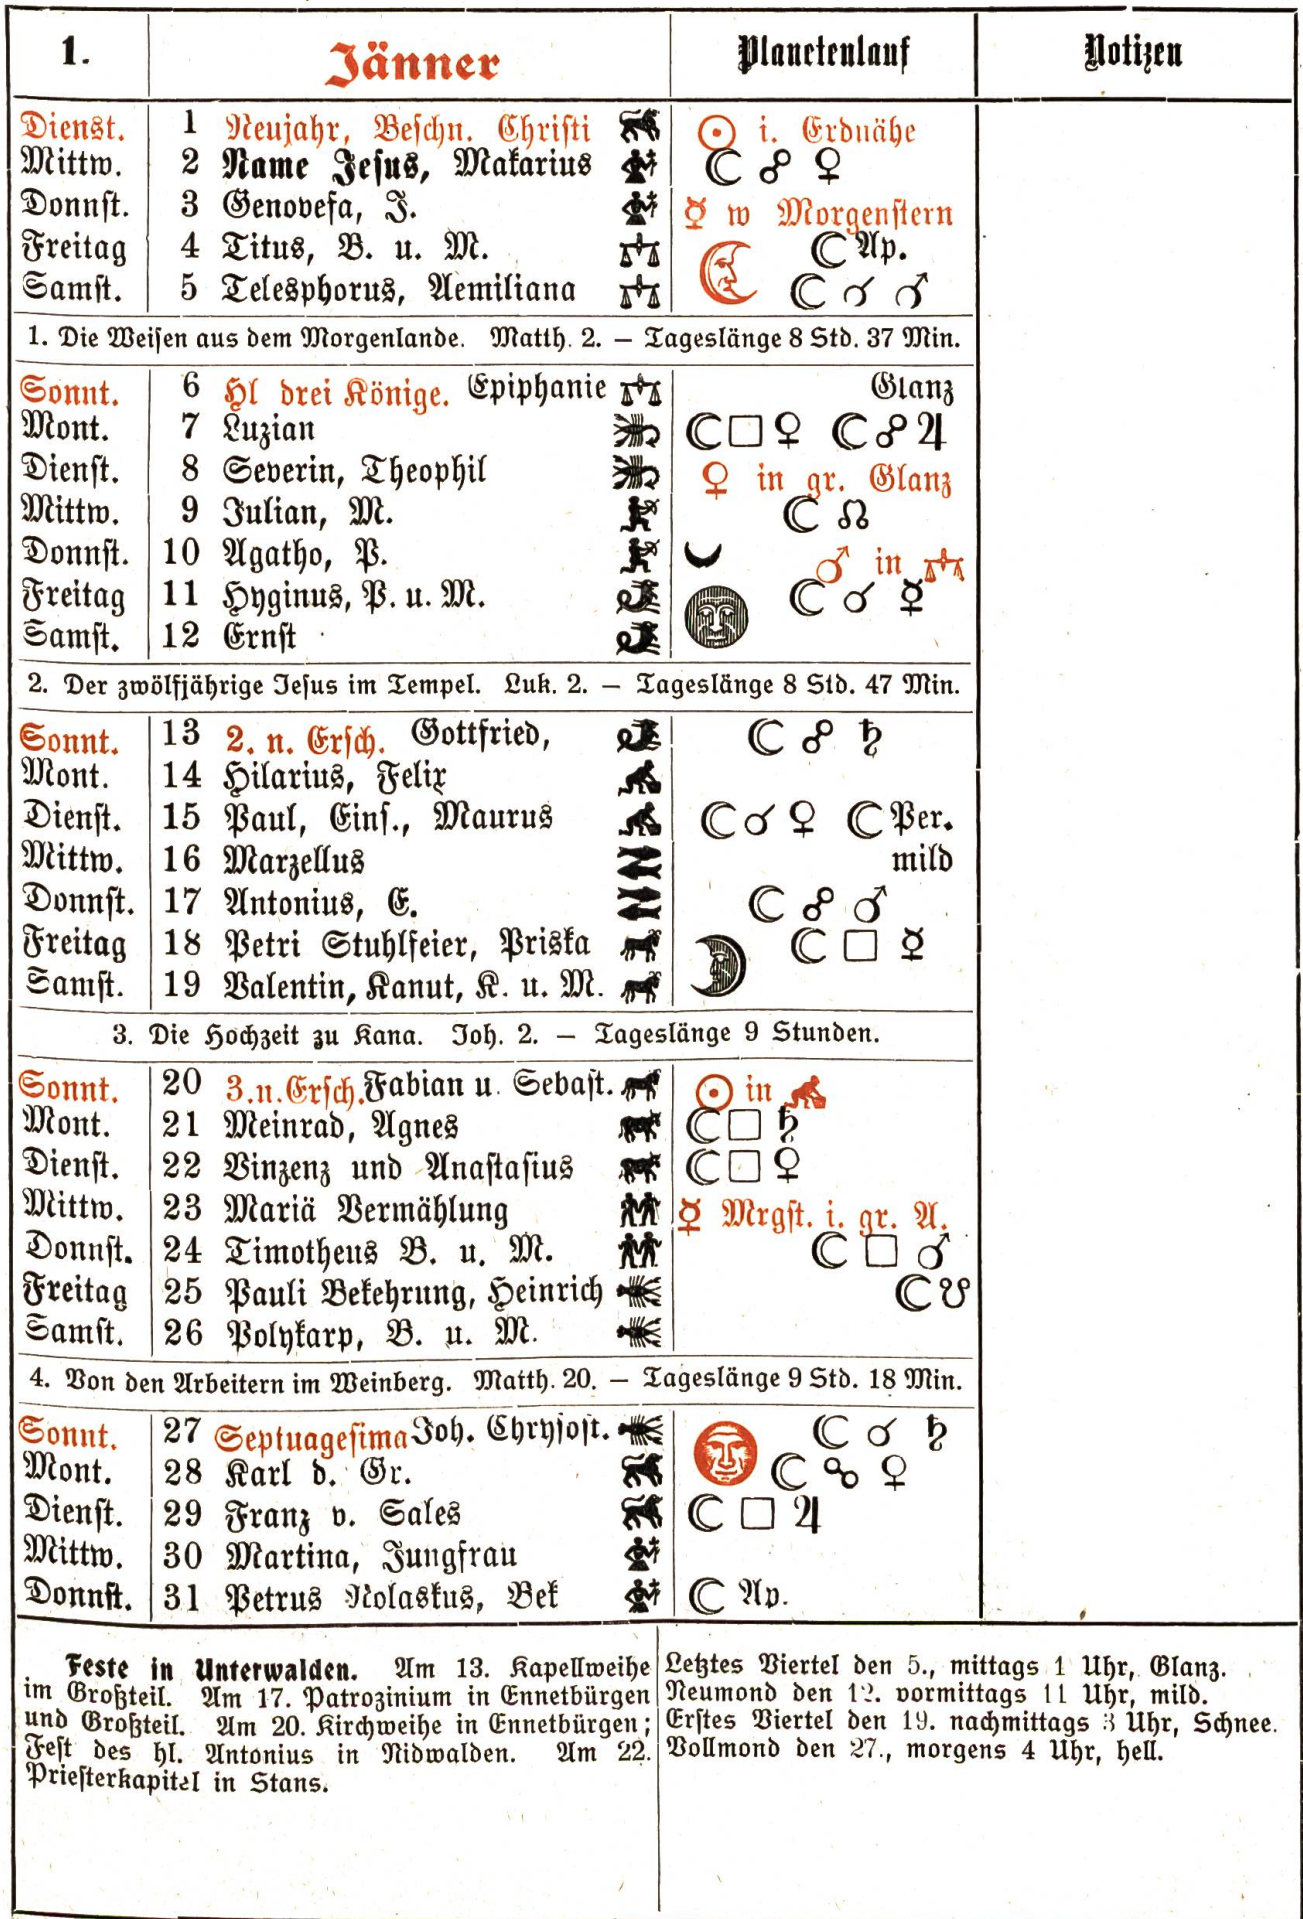 1. Jänner Planetenlauf Notizen
Dienst. 1 Neujahr, Beschn. Christi ☉ i. Erdnähe
Mittw. 2 Name Jesus, Makarius ☾ ☍ ♀
Donnst. 3 Genovefa, J. ☿ w Morgenstern
Freitag 4 Titus, B. u. M. ☾ Ap.
Samst. 5 Telesphorus, Aemiliana ☾ ☌ ♂
1. Die Weisen aus dem Morgenlande. Matth. 2. — Tageslänge 8 Std. 37 Min.
Sonnt. 6 Hl drei Könige. Epiphanie Glanz
Mont. 7 Luzian ☾ □ ♀ ☾ ☍ ♃
Dienst. 8 Severin, Theophil ♀ in gr. Glanz
Mittw. 9 Julian, M. ☾ ☊
Donnst. 10 Agatho, P. ♂ in ♎
Freitag 11 Hyginus, P. u. M. ☾ ☌ ☿
Samst. 12 Ernst
2. Der zwölfjährige Jesus im Tempel. Luk. 2. — Tageslänge 8 Std. 47 Min.
Sonnt. 13 2. n. Ersch. Gottfried, ☾ ☍ ♄
Mont. 14 Hilarius, Felix
Dienst. 15 Paul, Eins., Maurus ☾ ☌ ♀ ☾ Per.
Mittw. 16 Marzellus mild
Donnst. 17 Antonius, E. ☾ ☍ ♂
Freitag 18 Petri Stuhlfeier, Priska ☾ □ ☿
Samst. 19 Valentin, Kanut, K. u. M.
3. Die Hochzeit zu Kana. Joh. 2. — Tageslänge 9 Stunden.
Sonnt. 20 3. n. Ersch. Fabian u. Sebast. ☉ in ♒
Mont. 21 Meinrad, Agnes ☾ □ ♄
Dienst. 22 Vinzenz und Anastasius ☾ □ ♀
Mittw. 23 Mariä Vermählung ☿ Mrgst. i. gr. A.
Donnst. 24 Timotheus B. u. M. ☾ □ ♂
Freitag 25 Pauli Bekehrung, Heinrich ☾ ☋
Samst. 26 Polykarp, B. u. M.
4. Von den Arbeitern im Weinberg. Matth. 20. — Tageslänge 9 Std. 18 Min.
Sonnt. 27 Septuagesima Joh. Chrysost. ☾ ☌ ♄
Mont. 28 Karl d. Gr. ☾ ☍ ♀
Dienst. 29 Franz v. Sales ☾ □ ♃
Mittw. 30 Martina, Jungfrau
Donnst. 31 Petrus Nolaskus, Bek ☾ Ap.
Feste in Unterwalden. Am 13. Kapellweihe
im Großteil. Am 17. Patrozinium in Ennetbürgen
und Großteil. Am 20. Kirchweihe in Ennetbürgen;
Fest des hl. Antonius in Nidwalden. Am 22.
Priesterkapitel in Stans.
Letztes Viertel den 5., mittags 1 Uhr, Glanz.
Neumond den 12. vormittags 11 Uhr, mild.
Erstes Viertel den 19. nachmittags 3 Uhr, Schnee.
Vollmond den 27., morgens 4 Uhr, hell.